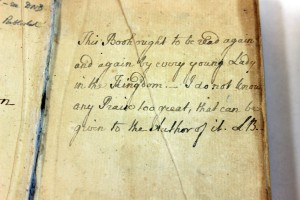 This Book ought to be read again
and again by every young Lady
in the Kingdom. — I do not know
any Praise too great, that can be
given to the Author of it. LB.